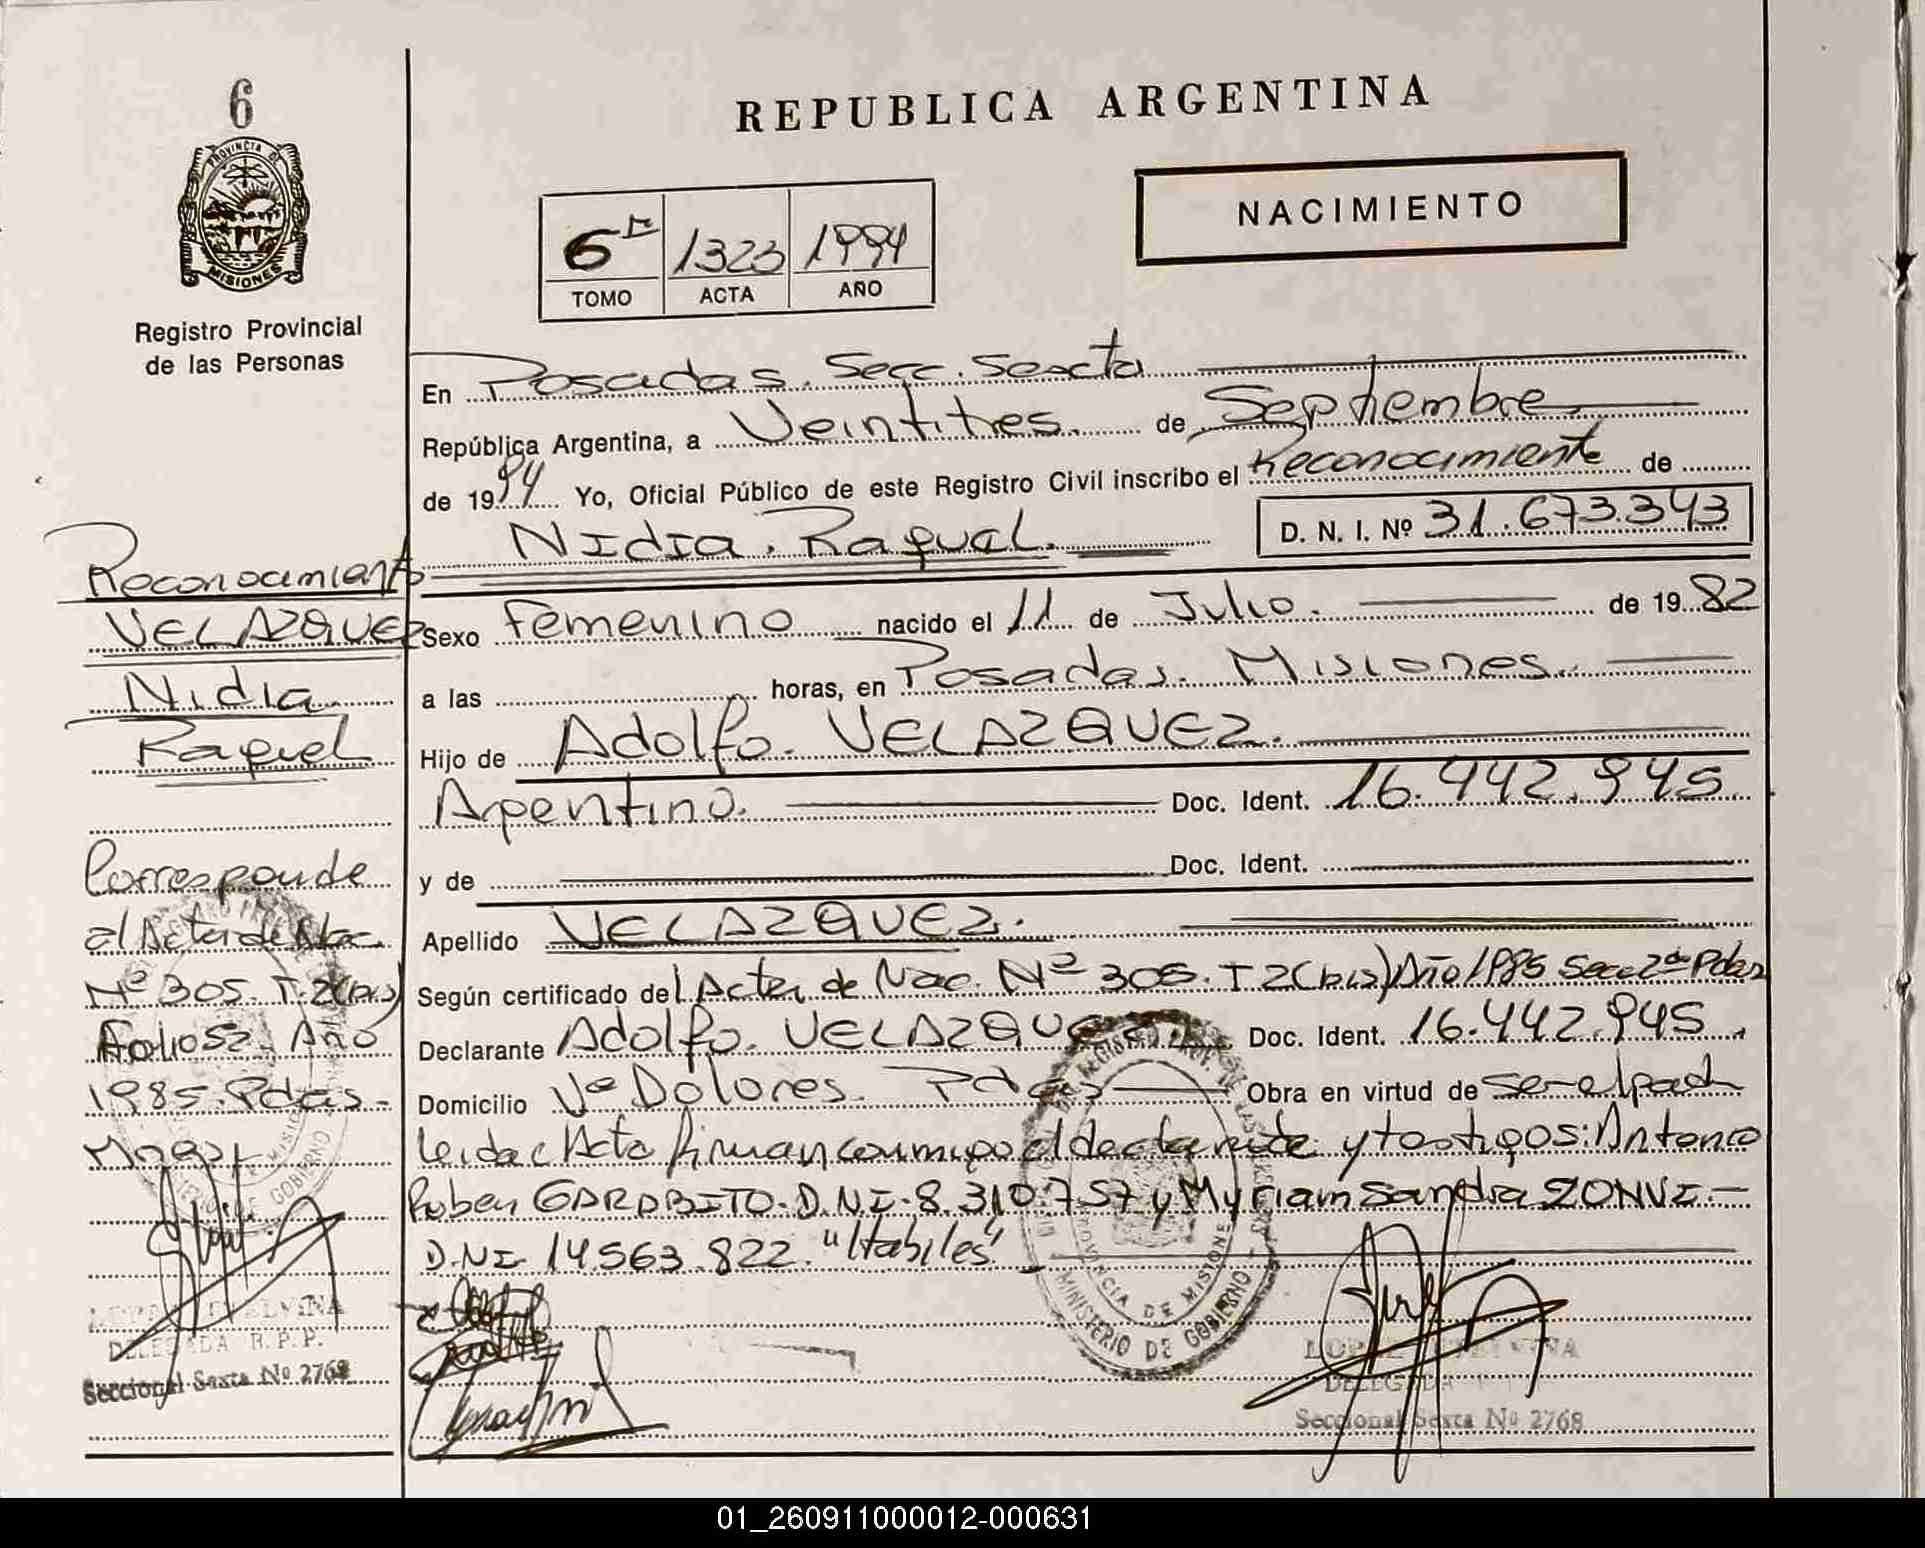 6
REPUBLICA ARGENTINA
PROVINCIA DE
MISIONES
Registro Provincial
de las Personas
NACIMIENTO
6º 1323 1994
TOMO ACTA AÑO
En Posadas. Secc. Sexta
República Argentina, a Veintitres. de Septiembre
de 1994 Yo, Oficial Público de este Registro Civil inscribo el Reconocimiento de
Nidia. Raquel. D. N. I. Nº 31.673.343
Sexo Femenino nacido el 11 de Julio. de 1982
a las horas, en Posadas. Misiones.
Hijo de Adolfo. VELAZQUEZ.
Argentino. Doc. Ident. 16.442.945
y de Doc. Ident.
Apellido VELAZQUEZ.
Según certificado del Acta de Nac. Nº 305. T 2(bis) Año 1985 Secc 2da Pdas
Declarante Adolfo. VELAZQUEZ Doc. Ident. 16.442.945
Domicilio Vª Dolores. Pdas Obra en virtud de ser el padre
Leida el Acta firman conmigo el declarante y testigos: Antonio
Ruben GARABITO. D.N.I. 8.310.757 y Myriam Sandra
D.N.I. 14.563.822. "Habiles"
Reconocimiento
VELAZQUEZ
Nidia
Raquel
Corresponde
al Acta de Nac.
Nº 305. T. 2(bis)
Folio 52. Año
1985. Pdas.
MINISTERIO DE GOBIERNO
PROVINCIA DE MISIONES
DELEGADA R.P.P.
Seccional Sexta Nº 2768
DELEGADA
Seccional Sexta Nº 2768
01_260911000012-000631